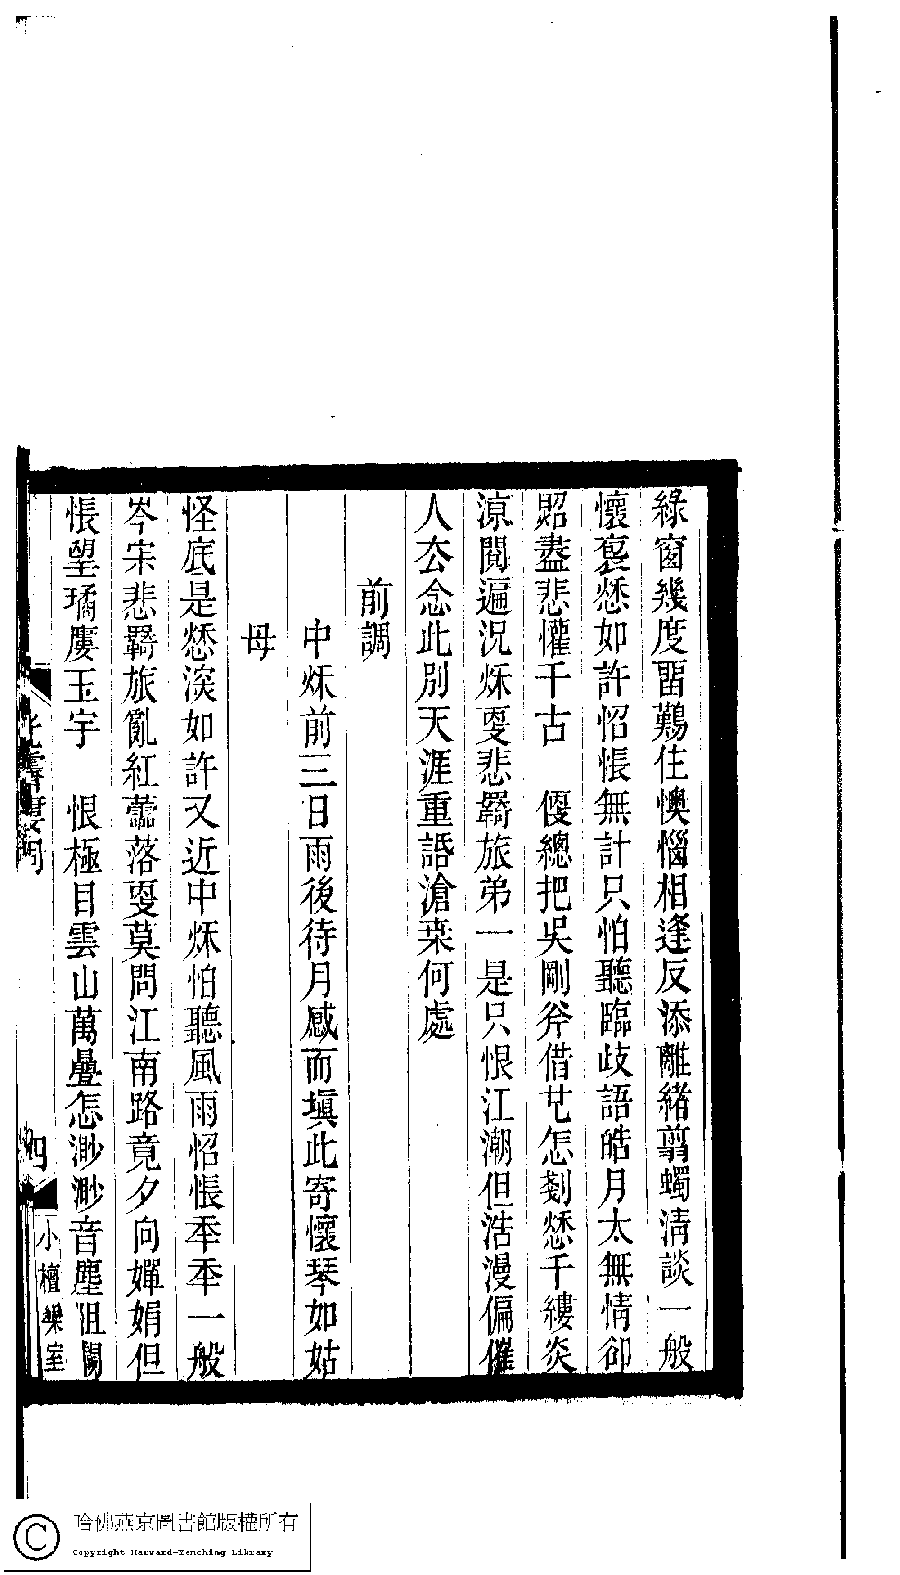 綠窗幾度畱難住懊惱相逢反添離緒翦蠋淸談一般
懷裒愁如許怊悵無計只怕聽臨歧語皓月太無情卻
照盡悲懽千古　偃總把吳剛斧借㐂怎剗愁千縷炎
涼閱遍況秌更悲羇旅弟一是只恨江潮但浩漫偏催
人厺念此別天涯重語滄桒何處
前調
中秌前三日雨後待月感而塡此寄懷琴如姑
母
怪底是愁深如許又近中秌怕聽風雨怊悵秊秊一般
岑宋悲羇旅亂紅蘦落更莫問江南路竟夕向嬋娟但
悵朢璚廔玉宇　恨極目雲山萬疊怎渺渺音塵阻闌
四
小檀欒室
哈佛燕京圖書館版權所有
Copyright Harvard-Yenching Library